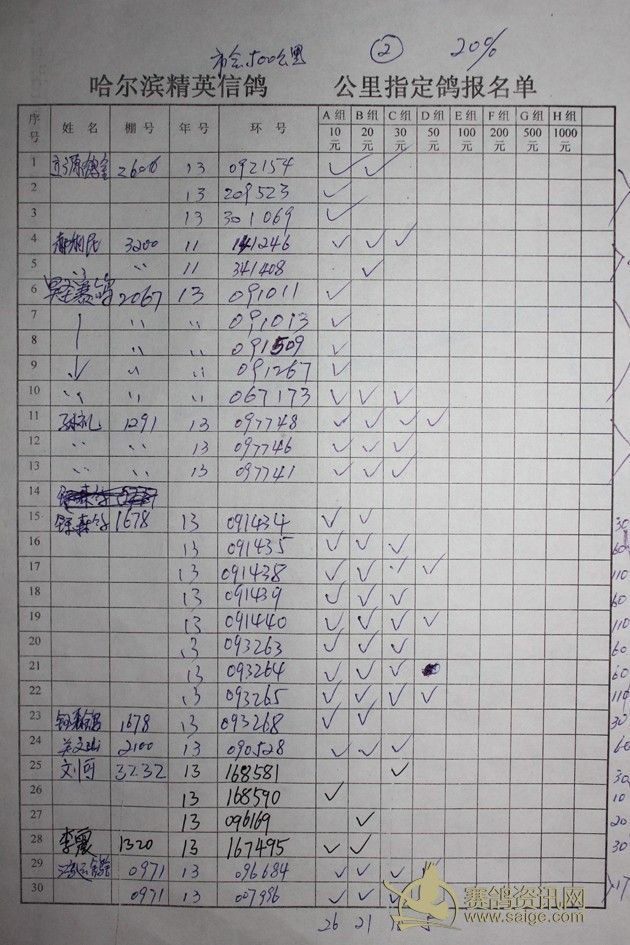 市会500公里 ② 20%
哈尔滨精英信鸽 公里指定鸽报名单
序号 姓 名 棚 号 年 号 环 号 A 组 10 元 B 组 20 元 C 组 30 元 D 组 50 元 E 组 100 元 F 组 200 元 G 组 500 元 H 组 1000 元
1 2606 13 092154 ✓ ✓
2 13 209523 ✓
3 13 301069 ✓
4 3200 11 141246 ✓ ✓ ✓
5 〃 〃 11 341408 ✓
6 2067 13 091011 ✓
7 〃 〃 091013 ✓
8 〃 〃 091509 ✓
9 〃 〃 091267 ✓
10 〃 〃 〃 067173 ✓ ✓ ✓
11 孙礼 1291 13 097748 ✓ ✓ ✓ ✓
12 〃 〃 13 097746 ✓ ✓ ✓
13 〃 〃 13 097741 ✓ ✓ ✓
14
15 1678 13 091434 ✓ ✓ 30
16 13 091435 ✓ ✓ ✓ 60
17 13 091438 ✓ ✓ ✓ ✓ 110
18 13 091439 ✓ ✓ ✓ 60
19 13 091440 ✓ ✓ ✓ ✓ 110
20 13 093263 ✓ ✓ ✓ 60
21 13 093264 ✓ ✓ ✓ 60
22 13 093265 ✓ ✓ ✓ ✓ 110
23 1678 13 093268 ✓ ✓ 30
24 2100 13 090528 ✓ ✓ ✓ 60
25 刘可 3232 13 168581 ✓ 30
26 13 168590 ✓ 10
27 13 096169 ✓ 20
28 李震 1320 13 167495 ✓ ✓ 30
29 0971 13 096684 ✓ ✓ ✓
30 0971 13 007996 ✓ ✓ ✓ 17
26 21
赛鸽资讯网
www.saige.com